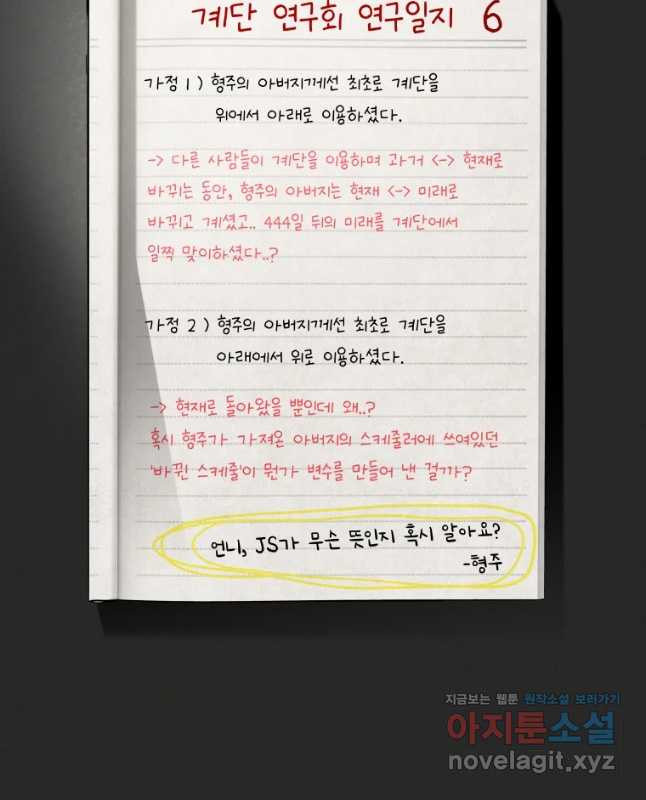 계단 연구회 연구일지 6
가정 1) 형주의 아버지께선 최초로 계단을
위에서 아래로 이용하셨다.
-> 다른 사람들이 계단을 이용하며 과거 <-> 현재로
바뀌는 동안, 형주의 아버지는 현재 <-> 미래로
바뀌고 계셨고.. 444일 뒤의 미래를 계단에서
일찍 맞이하셨다..?
가정 2) 형주의 아버지께선 최초로 계단을
아래에서 위로 이용하셨다.
-> 현재로 돌아왔을 뿐인데 왜..?
혹시 형주가 가져온 아버지의 스케줄러에 쓰여있던
'바뀐 스케줄'이 뭔가 변수를 만들어 낸 걸까?
언니, JS가 무슨 뜻인지 혹시 알아요?
-형주
지금보는 웹툰 원작소설 보러가기
아지툰소설
novelagit.xyz